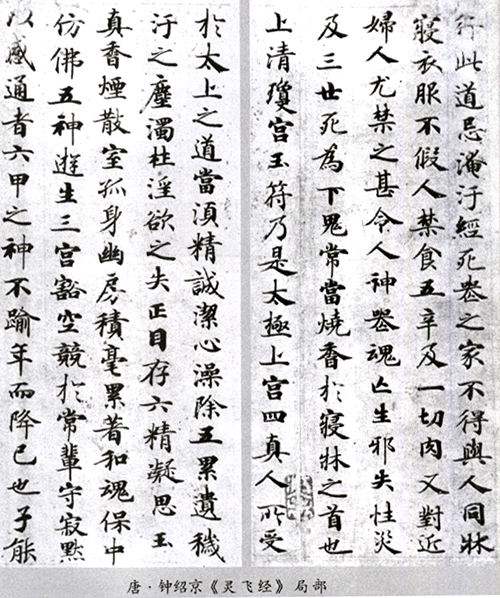 行此道忌淹汙經死喪之家不得與人同牀
寢衣服不假人禁食五辛及一切肉又對近
婦人尤禁之甚令人神喪魂亡生邪失性灾
及三世死為下鬼常當燒香於寢牀之首也
上清瓊宫玉符乃是太極上宫四真人所受
於太上之道當湏精誠潔心澡除五累遺穢
汙之塵濁杜淫欲之失正目存六精凝思玉
真香煙散室孤身幽房積毫累著和魂保中
仿佛五神遊生三宫豁空競於常輩守寂默
以感通者六甲之神不踰年而降已也子能
唐·钟绍京《灵飞经》局部